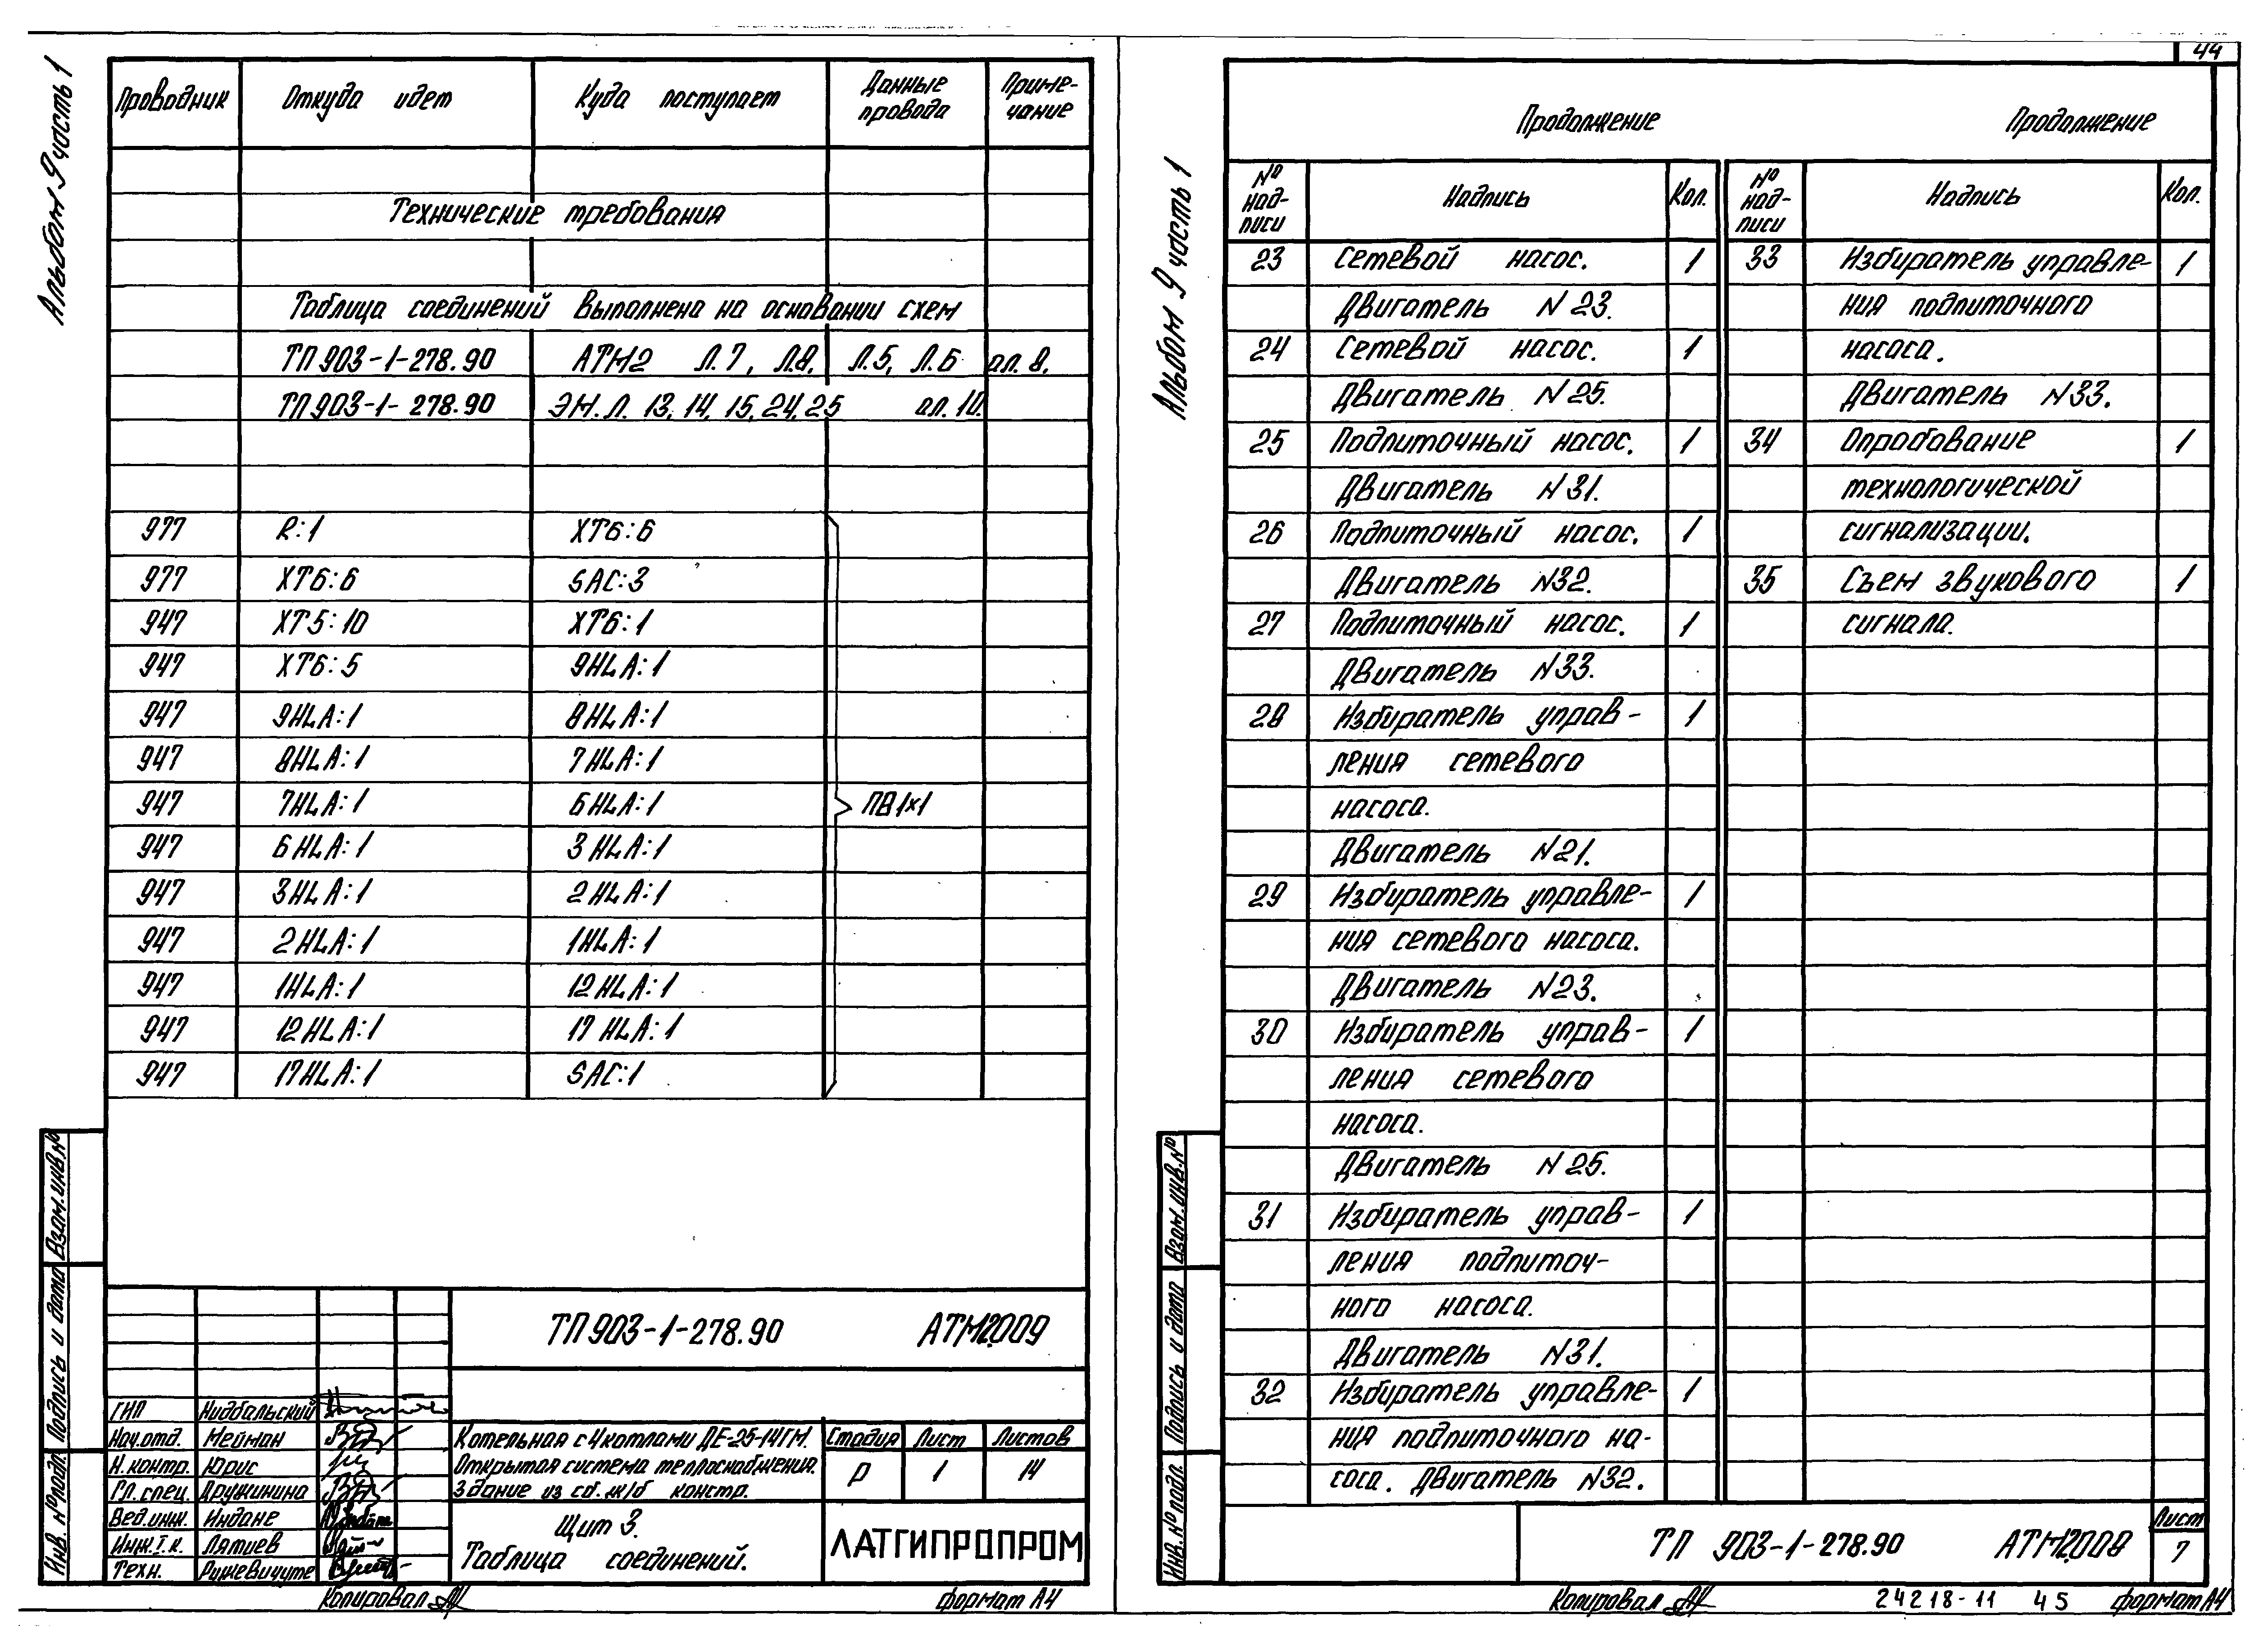 Альбом 9 часть 1
Проводник Откуда идет Куда поступает Данные провода Приме-чание
Технические требования
Таблица соединений выполнена на основании схем
ТП 903-1-278.90 АТМ2 Л.7, Л.8, Л.5, Л.6 ал. 8.
ТП 903-1-278.90 ЭМ. Л. 13, 14, 15, 24, 25 ал. 10.
977 R:1 XT6:6
977 XT6:6 SAC:3
947 XT5:10 XT6:1
947 XT6:5 9HLA:1
947 9HLA:1 8HLA:1
947 8HLA:1 7HLA:1
947 7HLA:1 6HLA:1 ПВ 1х1
947 6HLA:1 3HLA:1
947 3HLA:1 2HLA:1
947 2HLA:1 1HLA:1
947 1HLA:1 12HLA:1
947 12HLA:1 17HLA:1
947 17HLA:1 SAC:1
Взам. инв. №
Подпись и дата
Инв. № подл.
ТП 903-1-278.90 АТМ2.009
ГИП Нидбальский
Нач.отд. Мейман
Н.контр. Юрис
Гл. спец. Дружинина
Вед.инж. Индане
Инж. I. к. Лятиев
Техн. Рижевичуте
Котельная с 4 котлами ДЕ-25-14ГМ.
Открытая система теплоснабжения.
Здание из сб. ж/б констр.
Стадия Лист Листов
Р 1 14
Щит 3.
Таблица соединений.
ЛАТГИПРОПРОМ
Копировал
формат А4
44
Альбом 9 часть 1
Продолжение Продолжение
№ над-писи Надпись Кол. № над-писи Надпись Кол.
23 Сетевой насос. 1 33 Избиратель управле- 1
Двигатель N 23. ния подпиточного
24 Сетевой насос. 1 насоса.
Двигатель N 25. Двигатель N33.
25 Подпиточный насос. 1 34 Опробование 1
Двигатель N 31. технологической
26 Подпиточный насос. 1 сигнализации.
Двигатель N32. 35 Съем звукового 1
27 Подпиточный насос. 1 сигнала.
Двигатель N33.
28 Избиратель управ- 1
ления сетевого
насоса.
Двигатель N21.
29 Избиратель управле- 1
ния сетевого насоса.
Двигатель N23.
30 Избиратель управ- 1
ления сетевого
насоса.
Двигатель N 25.
31 Избиратель управ- 1
ления подпиточ-
ного насоса.
Двигатель N31.
32 Избиратель управле- 1
ния подпиточного на-
соса. Двигатель N32.
Взам. инв. №
Подпись и дата
Инв. № подл.
ТП 903-1-278.90 АТМ2.008
Лист
7
Копировал
24218-11 45 формат А4